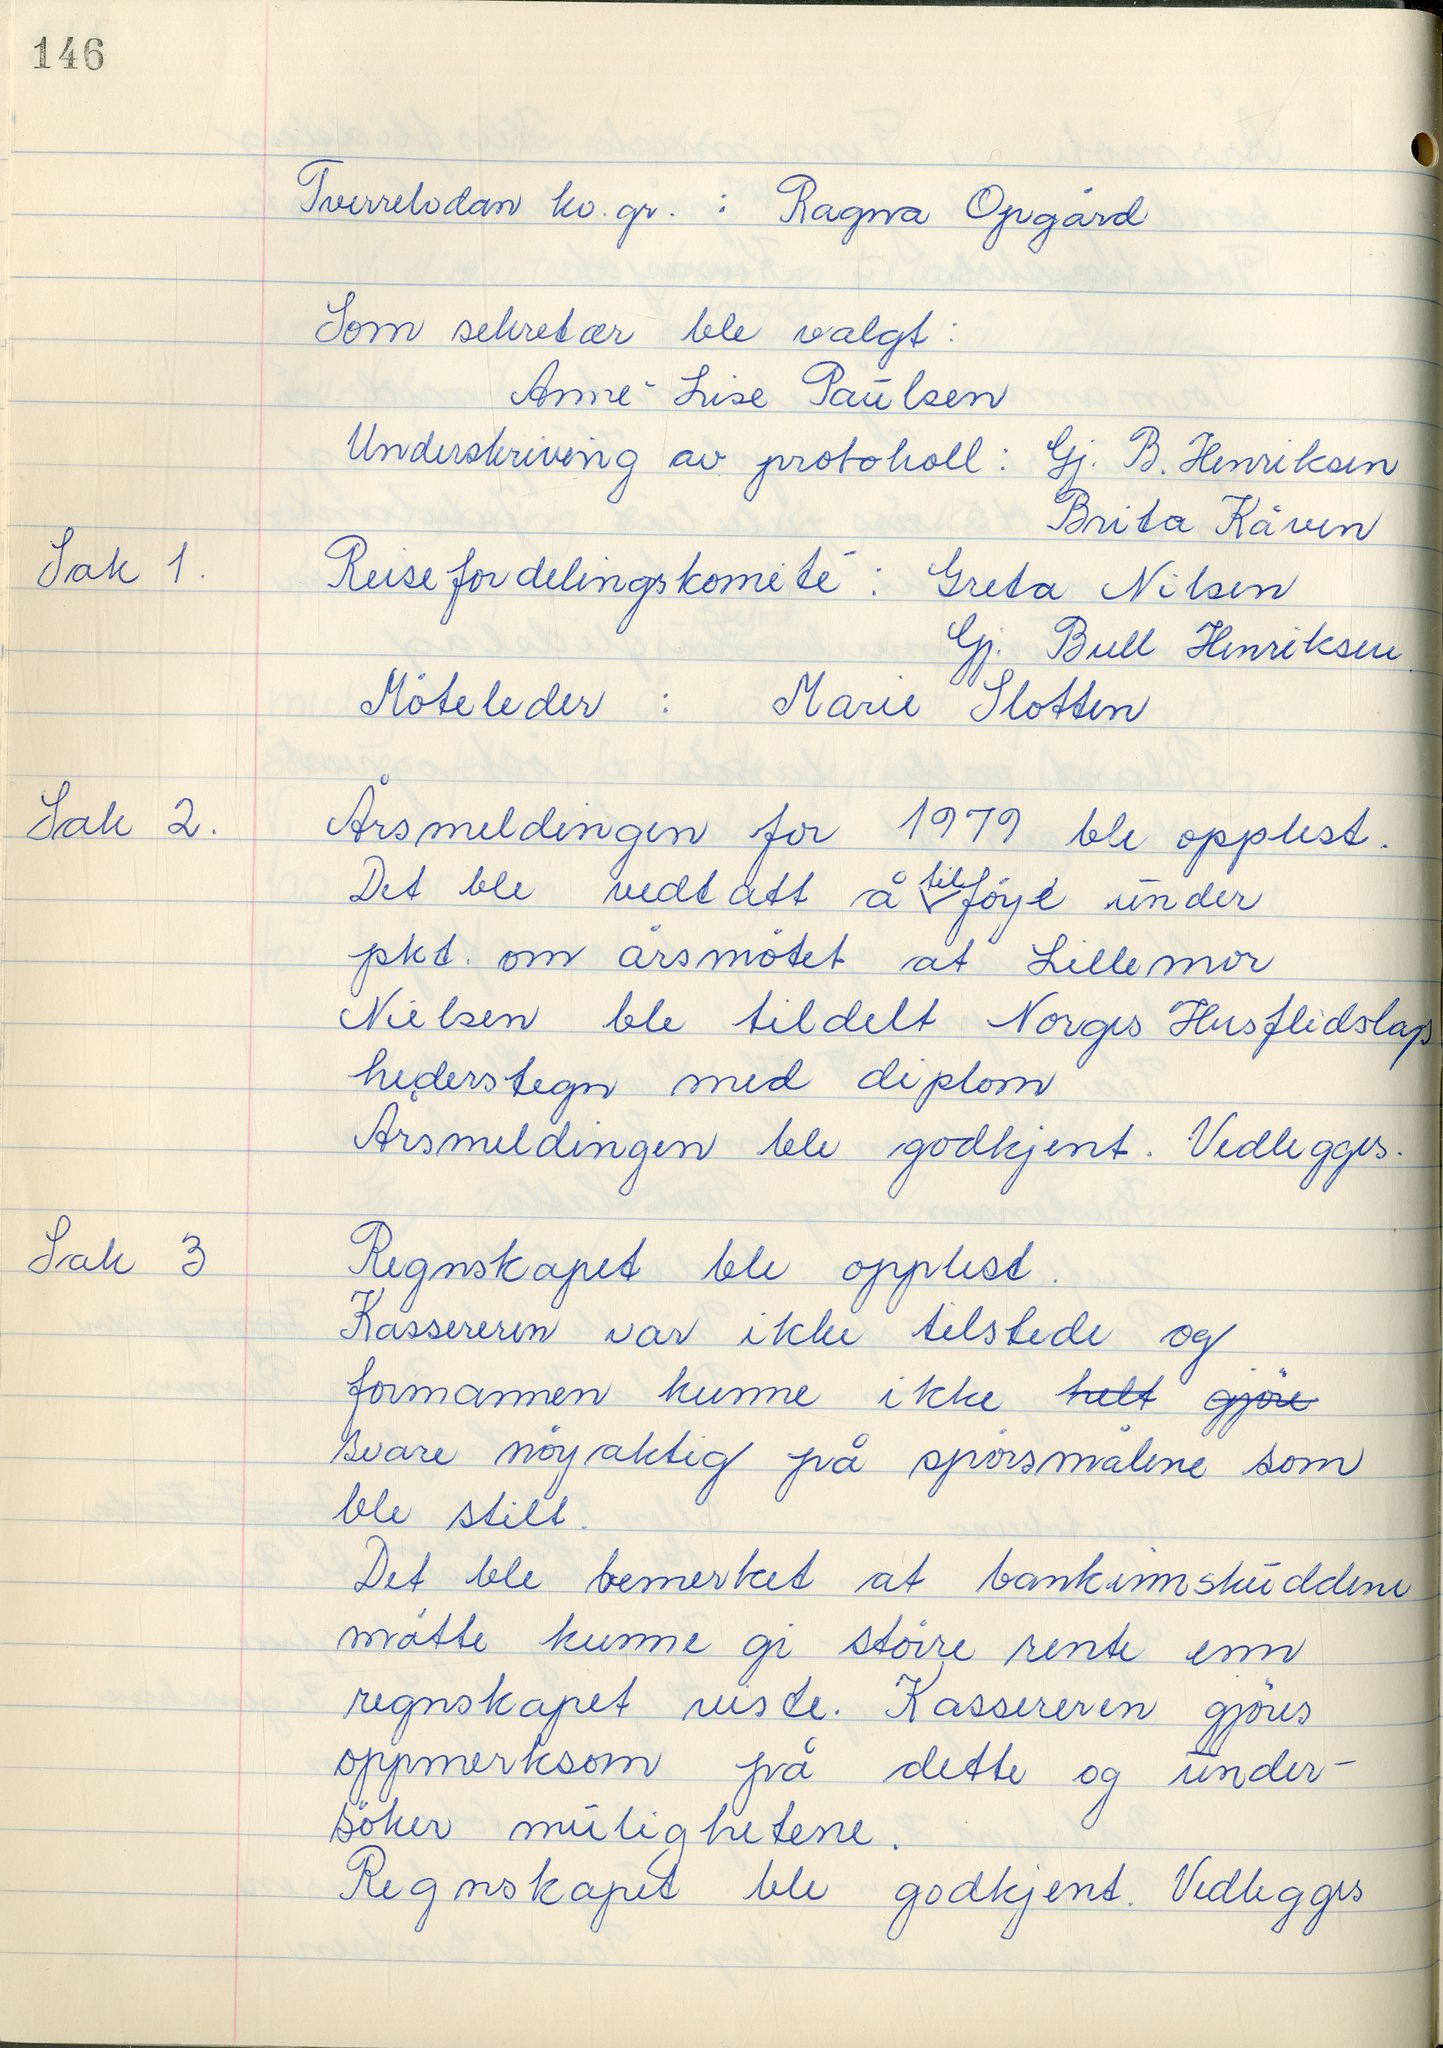 146
Tverrelvdan kv. gr. : Ragna Opgård
Som sekretær ble valgt:
Anne-Lise Paulsen
Underskriving av protokoll: Gj. B. Henriksen
Brita Kåven
Sak 1. Reisefordelingskomité: Greta Nilsen
Gj. Bull Henriksen.
Möteleder : Marie Slotten
Sak 2. Årsmeldingen for 1979 ble opplest.
Det ble vedtatt å tilföye under
pkt. om årsmötet at Lillemor
Nielsen ble tildelt Norges Husflidslags
hederstegn med diplom
Årsmeldingen ble godkjent. Vedlegges.
Sak 3 Regnskapet ble opplest.
Kassereren var ikke tilstede og
formannen kunne ikke helt gjöre
svare nöyaktig på spörsmålene som
ble stilt.
Det ble bemerket at bankinnskuddene
måtte kunne gi större rente enn
regnskapet viste. Kassereren gjöres
oppmerksom på dette og under-
söker mulighetene.
Regnskapet ble godkjent. Vedlegges